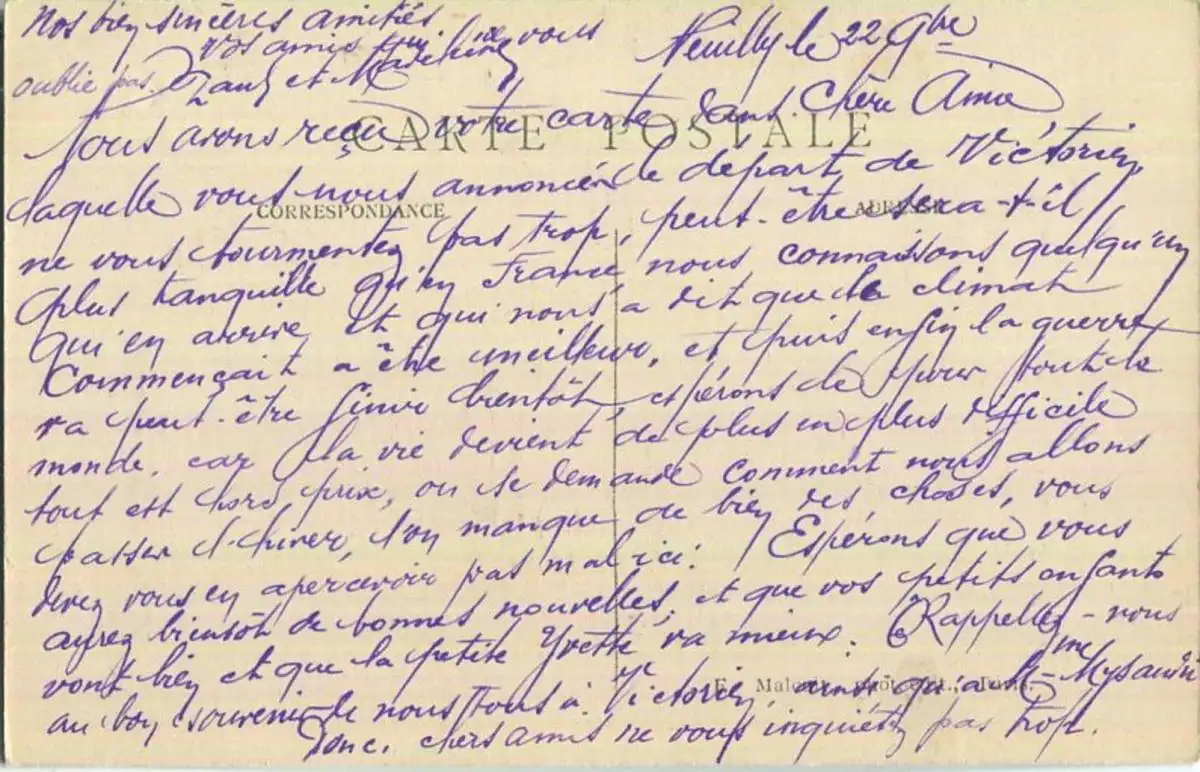 Neuilly le 22 9bre
Chère Amie
Nous avons reçu votre carte dans
laquelle vous nous annonciez le départ de Victorien
ne vous tourmentez pas trop, peut-être sera-t-il
plus tranquille qu'en France, nous connaissons quelqu'un
qui en arrive et qui nous a dit que le climat
commençait a être meilleur, et puis enfin la guerre
va peut-être finir bientôt, espérons le pour tout le
monde. car la vie devient de plus en plus difficile
tout est hors prix, on se demande comment nous allons
passer l'hiver, l'on manque de bien des choses, vous
devez vous en apercevoir pas mal ici. Espérons que vous
aurez bientôt de bonnes nouvelles, et que vos petits enfants
vont bien et que la petite Yvette va mieux. Rappellez-nous
au bon souvenir de nous tous à Victorien, ainsi qu'a Mme
Donc. chers amis ne vous inquiétez pas trop.
Nos bien sincères amitiés
vos amis qui ne vous
oublie pas. et
CARTE POSTALE
CORRESPONDANCE
ADRESSE